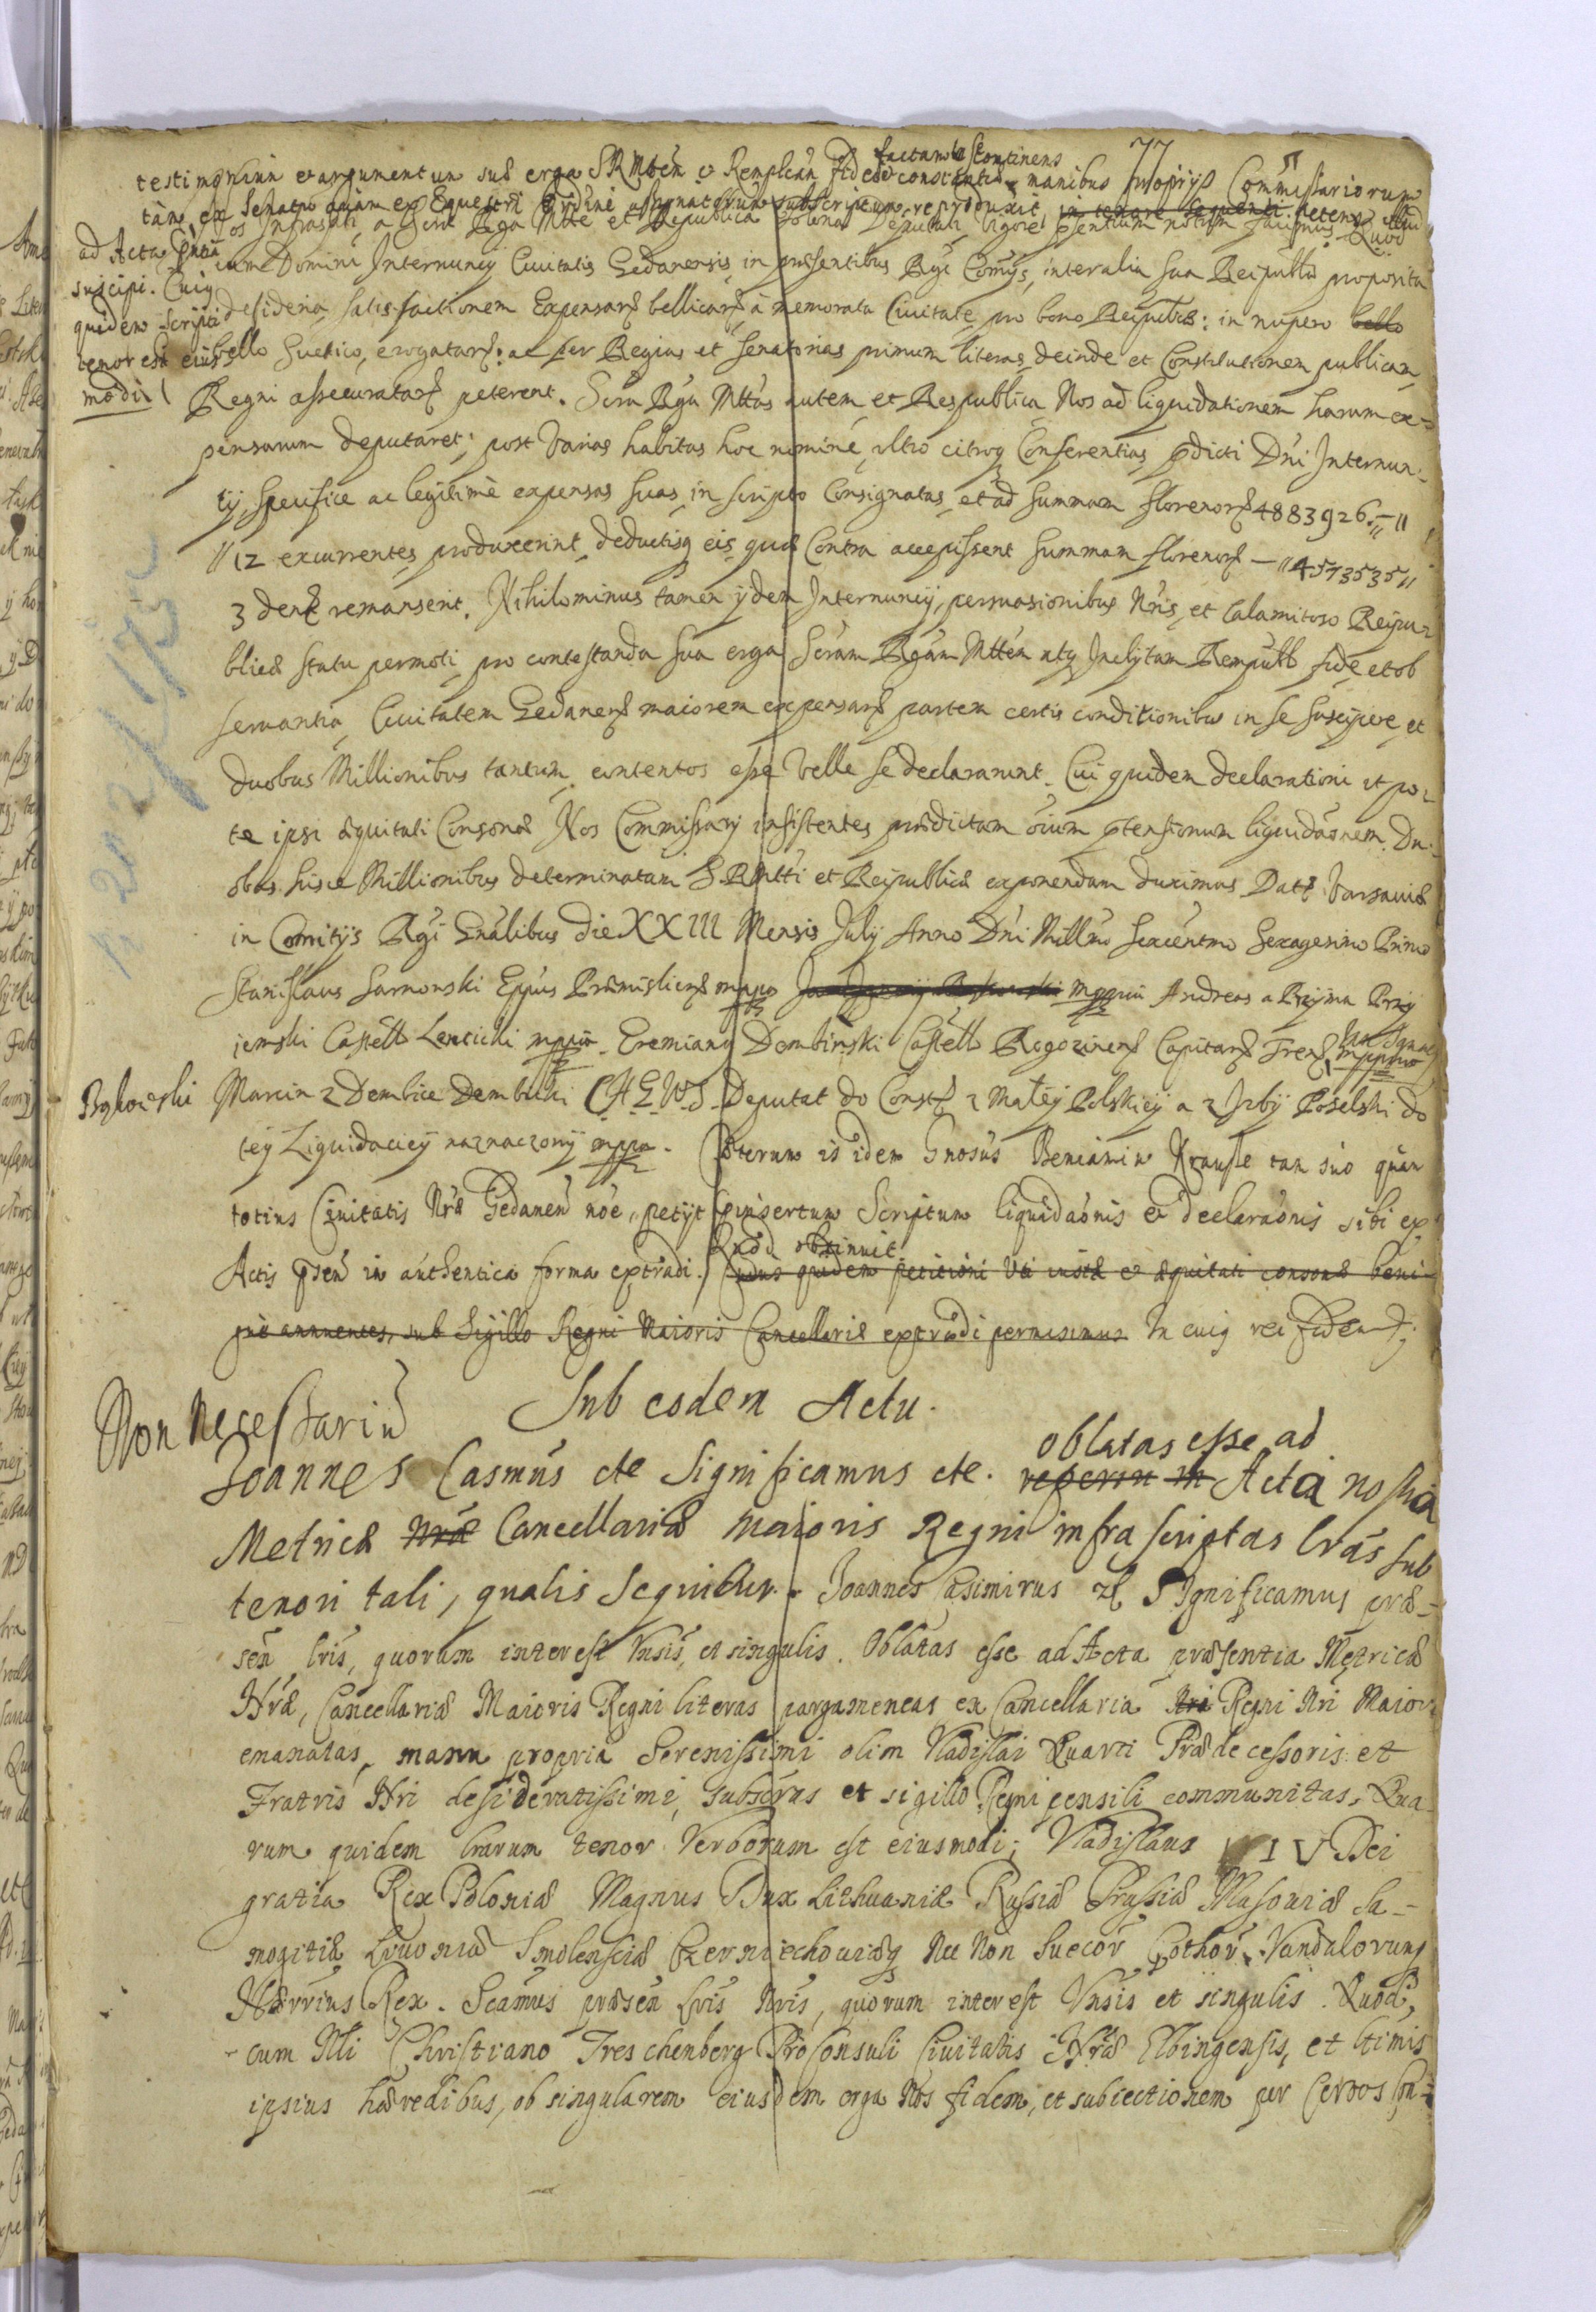 77
factam
continens
testimonium et argumentum suæ erga SRMttem et Remplcam fidei et constantiæ manibus proprijs Commissariorum
tam ex Senatu quam ex Equestri Ordine assignatorum subscriptum reproduxit, in tenore sequenti petens illud
ad Acta pntia
suscipi. Cuiq
quidem Scripti
tenor est eius
modi
Nos Infrascripti a Sera Rga Mtte et Republica Polona Deputati, Vigore pntium notum facimus. Quod
cum Domini Internuncij Ciuitatis Gedanensis, in præsentibus Rgi Comijs, inter alia sua Reipublæ proposita
desideria, satisfactionem Expensarum bellicarum à memorata Ciuitate, pro bono Reipublæ: in nupero bello
bello Suetico, erogatarum: ac per Regias et Senatorias primum literas, deinde et Constitutionem publicam
Regni assecuratarum peterent. Sera Rga Mttas autem et Respublica Nos ad liquidationem harum ex-
pensarum deputaret; post Varias habitas hoc nomine, ultro citroq Conferentias, pdicti Dni Internun-
tij, specifice ac legitimè expensas suas, in scripto Consignatas, et ad summam florenorum 4883926.-"
"12 excurrentes, produxerint, deductisq eis, quæ Contra accepissent summam florenorum - "4573535"
3 den remanserit. Nihilominus tamen ijdem Internuncij, persuasionibus Nris, et Calamitoso Reipu-
blicæ statu permoti, pro contestanda sua erga Seram Rgam Mttem atq Inclytam Rempubl fide et ob
seruantia, Ciuitatem Gedanens maiorem expensarum partem certis conditionibus in se suscipere, et
duobus Millionibus tantum contentos esse Velle se declararunt. Cui quidem declarationi ut po-
te ipsi æquitati Consonæ Nos Commissarij insistentes prædictam oium ptensionum liquidaonem Du-
obus hisce Millionibus determinatam S.RMtti et Reipublicæ exponendam duximus Datt Varsauiæ
in Comitijs Rgi Gnalibus die XXIII Mensis July Anno Dni Millmo Sexcentmo Sexagesimo Primo
Stanislaus Sarnowski Eppus Præmisliens mppa Jan Ignacij Bąkowski mppria Andreas a Przyma Przy
iemski Castell Lencicki mppria Eremianq Dombinski Castell Rogozinens Capitans Jan Ignac mppria
Bąkowski
Marcin z Dembice Dembicki C.H.G.W.S. Deputat do Const z Małej Polskiej a z Izby Poselski do
tej Liquidacieij naznaczony mppa. Cæterum is idem Gnosus Beniamin Krausse tam suo quam
totius Ciuitatis Nræ Gedanen noe, petijt pinsertum Scriptum liquidaonis et declaraonis sibi ex
Actis psen in authentica forma extradi. Quod obtinuit. Cuius quidem petitioni Vti iustæ et æquitati consonæ beni-
gnè annuentes, sub Sigillo Regni Maioris Cancellariæ extradi permisimus In cuiq rei fidem
Non Necessariu
Sub eodem Actu.
Joannes Casmus ete Significamus ete. referri in oblatas esse ad Acta nostra
Metricæ Nræ Cancellariæ Maioris Regni infrascriptas lras sub
tenori tali, qualis sequitur. Joannes Casimirus Significamus præ-
sen lris, quorum interest Vnsis, et singulis. Oblatas esse ad Acta præsentia Metricæ
Nræ, Cancellariæ Maioris Regni literas pargameneas ex Cancellaria Nri Regni Nri Maiori
emanatas, manu propria Serenissimi olim Vladislai Quarti Prædecessoris et
Fratris Nri desideratissimi, subscras et sigillo Regni pensili communitas. Qua-
rum quidem lrarum tenor Verborum est eiusmodi; Vladislaus IV Dei
gratia Rex Poloniæ Magnus Dux Lithuaniæ Russiæ Prussiæ Masouiæ Sa-
mogitiæ Liuoniæ Smolensciæ Czerniechouiæq Nec Non Suecor Gothor Vandalorumq
Hærrius Rex. Seamus præsen lris Nris, quorum interest Vnsis et singulis. Quod,
cum Nli Christiano Treschenberg Proconsuli Ciuitatis Nræ Elbingensis, et ltimis
ipsius hæredibus, ob singularem eiusdem erga Nos fidem, et subiectionem per Certos